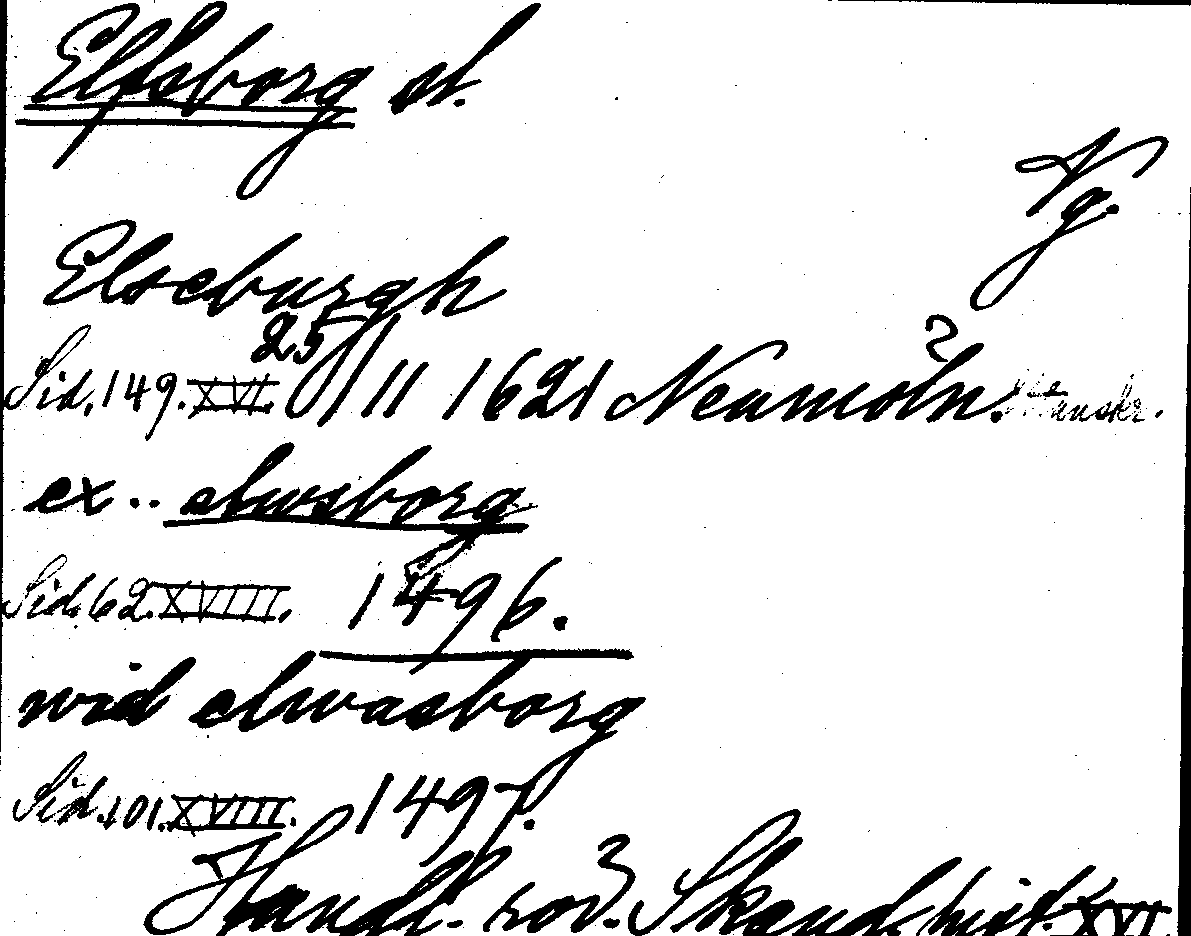 Elfsborg sl.
Vg.
Elseburgh
Sid. 149. XVI. 25/11 1621 Neumöln.
ex .. elwsborg
Sid. 62. XVIII. 1496.
wid elwasborg
Sid. 101. XVIII. 1497.
Handl. rör. Skand. hist. XVI